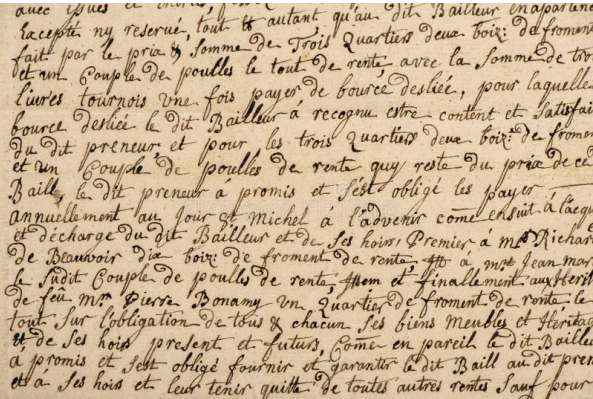 avec issues et
Excepté ny reservé, tout & autant qu'au dit Bailleur en aparten
fait par le prix & Somme de Trois Quartiers deux boiz: de froment
et un Couple de poulles le tout de rente avec la Somme de tro
livres tournois une fois payer de bource desliée, pour laquelle
bource desliée le dit Bailleur à recognu estre content et Satisfai
du dit preneur et pour les trois Quartiers deux boiz: de fromen
et un Couple de poulles de rente quy reste du prix de ce
Baill, le dit preneur à promis et s'est obligé les payer
annuellement au Jour St Michel à l'advenir come ensuit à l'acqu
et décharge du dit Bailleur et de Ses hoirs, Premier à Mr Richar
de Beauvoir dix boiz: de froment de rente, à mr Jean mar
le Sudit Couple de poulles de rente, Item et finallement aux Herit
de feu Mr Pierre Bonamy un Quartier de froment de rente le
tout Sur l'obligation de tous & chacun Ses biens Meubles et Héritag
& de Ses hoirs present et futurs, Come en pareil le dit Bailleu
à promis et s'est obligé fournir et garantir le dit Baill au dit pren
et à Ses hoirs et leur tenir quitte de toutes autres rentes Sauf pour